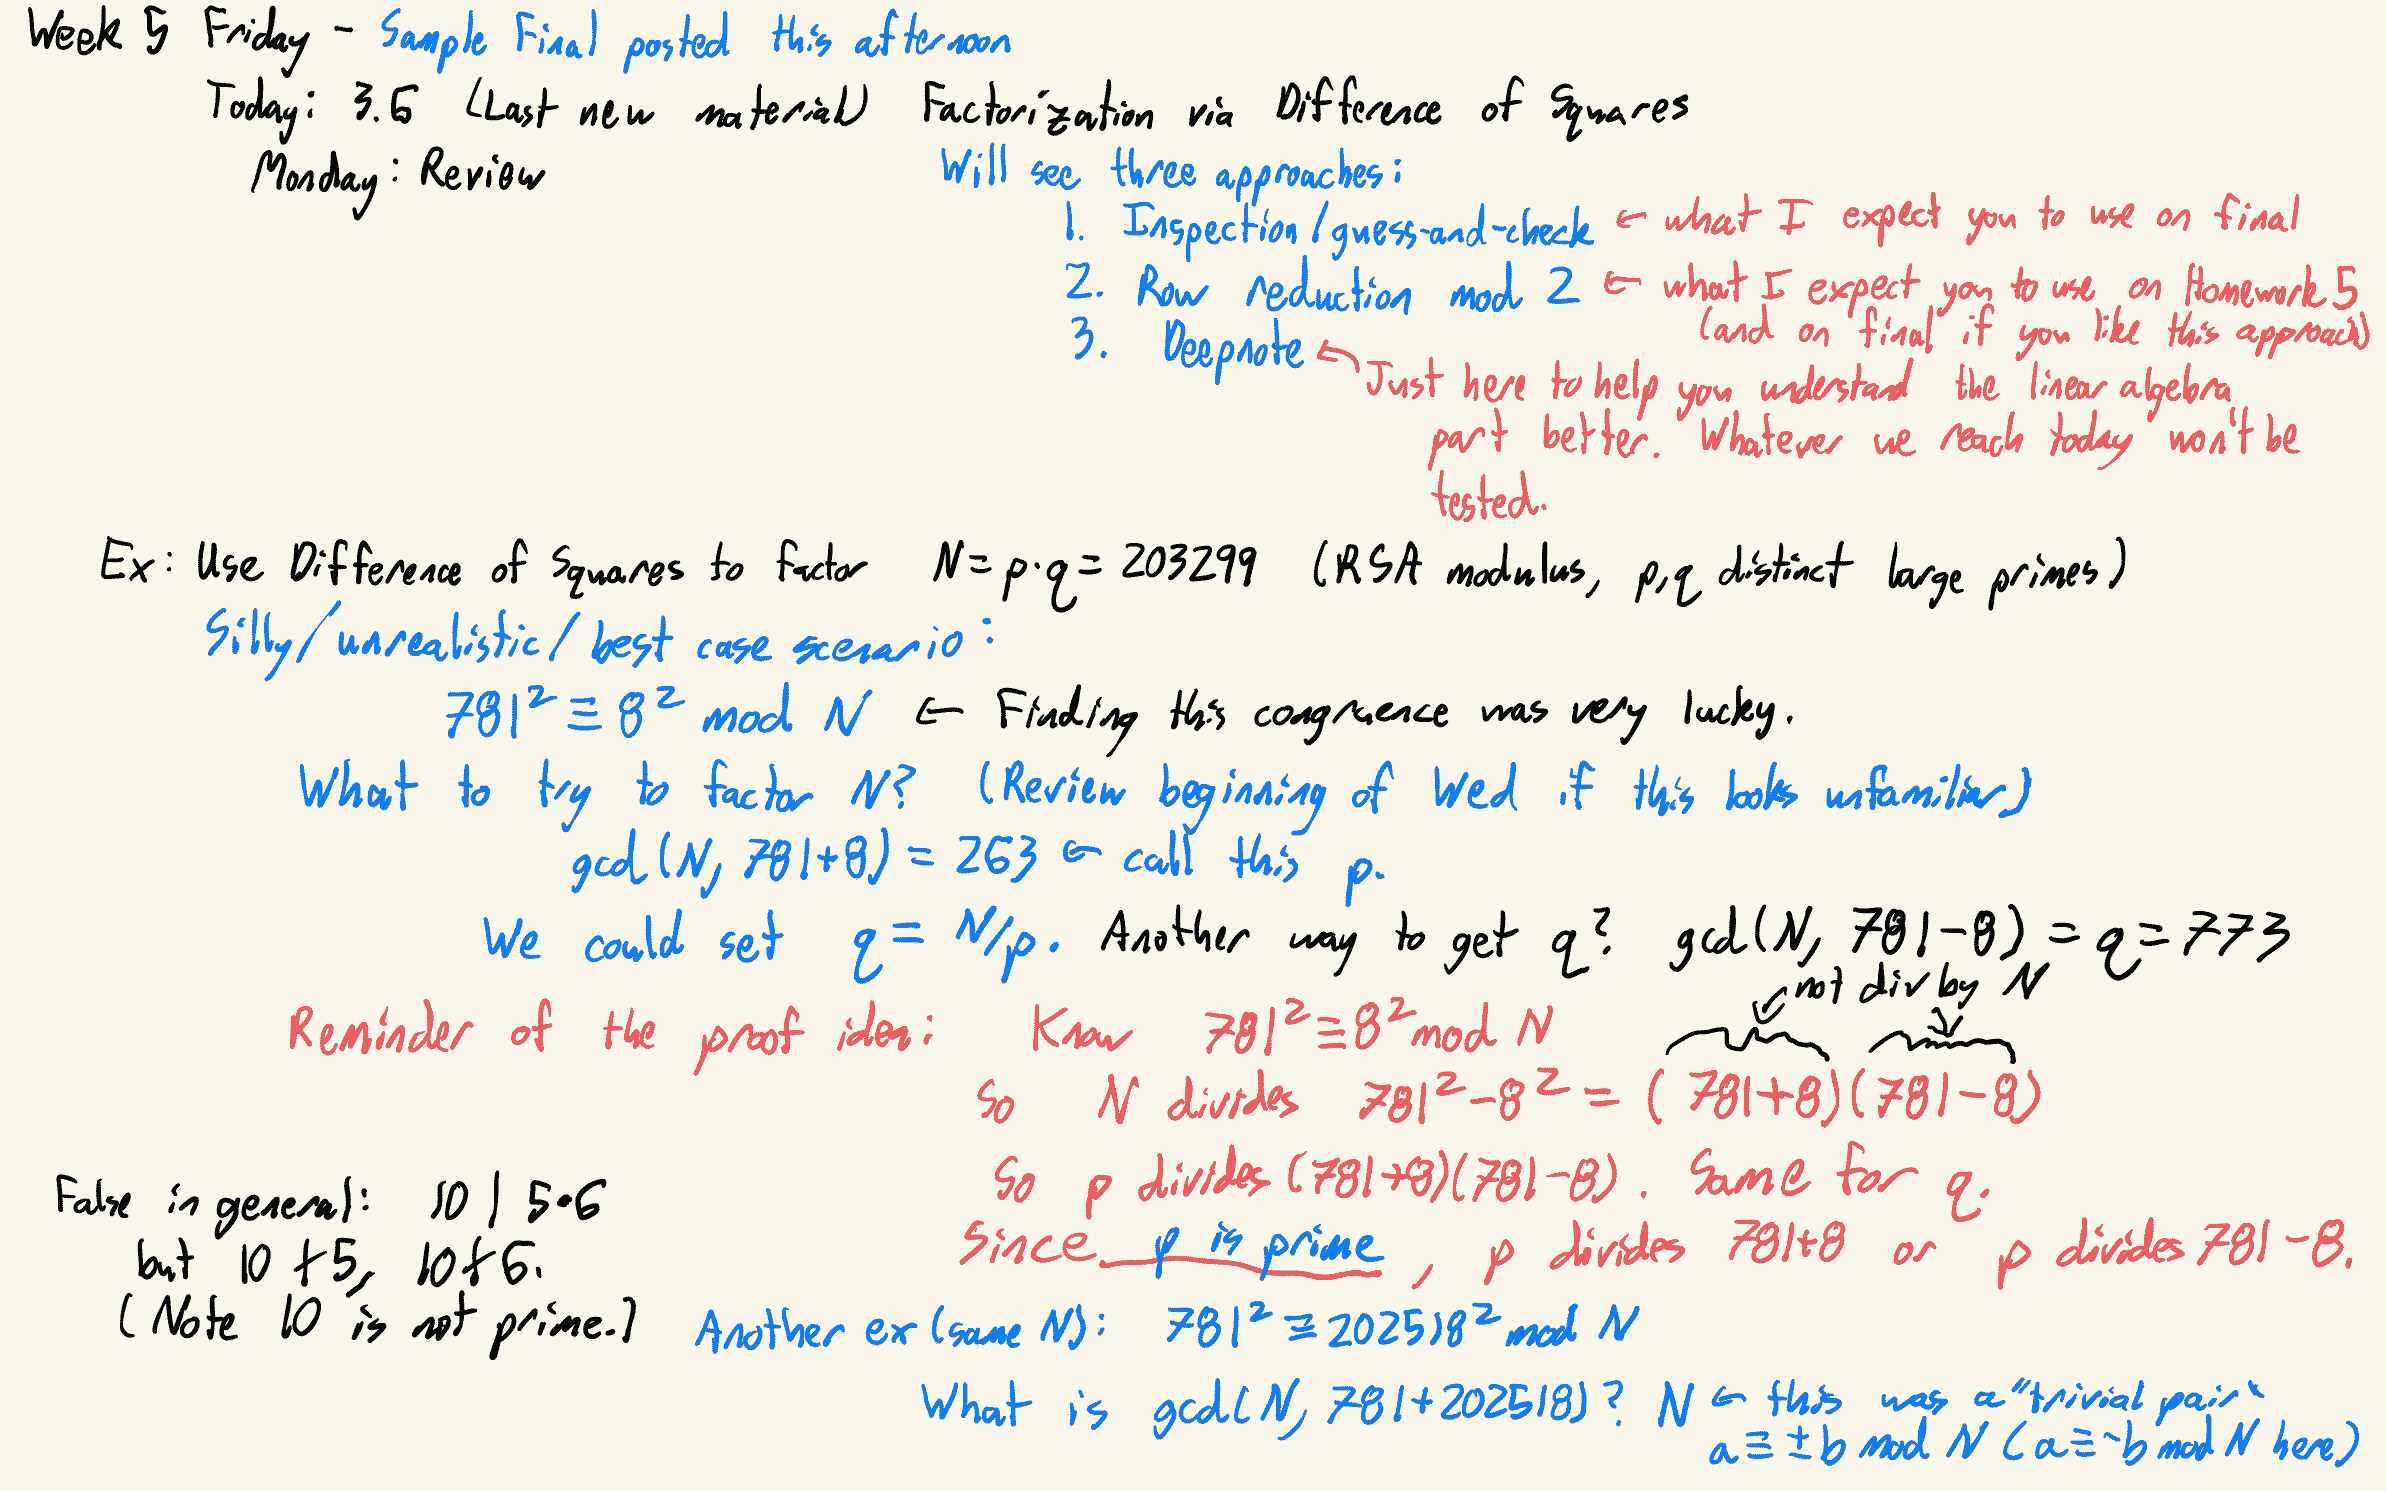 Week 5 Friday - Sample Final posted this afternoon
Today: 3.6 (Last new material) Factorization via Difference of Squares
Monday: Review
Will see three approaches:
1. Inspection/guess-and-check ← what I expect you to use on final
2. Row reduction mod 2 ← what I expect you to use on Homework 5
(and on final if you like this approach)
3. Deepnote ← Just here to help you understand the linear algebra
part better. Whatever we reach today won't be
tested.
Ex: Use Difference of Squares to factor N = p·q = 203299 (RSA modulus, p,q distinct large primes)
Silly/unrealistic/best case scenario:
781² ≡ 8² mod N ← Finding this congruence was very lucky.
What to try to factor N? (Review beginning of Wed if this looks unfamiliar)
gcd(N, 781+8) = 263 ← call this p.
We could set q = N/p. Another way to get q? gcd(N, 781-8) = q = 773
not div by N
Reminder of the proof idea: Know 781² ≡ 8² mod N
So N divides 781² - 8² = (781+8)(781-8)
So p divides (781+8)(781-8). Same for q.
Since p is prime, p divides 781+8 or p divides 781-8.
False in general: 10 | 5·6
but 10 ∤ 5, 10 ∤ 6.
(Note 10 is not prime.)
Another ex (same N): 781² ≡ 202518² mod N
What is gcd(N, 781+202518)? N ← this was a "trivial pair"
a ≡ ±b mod N (a ≡ -b mod N here)